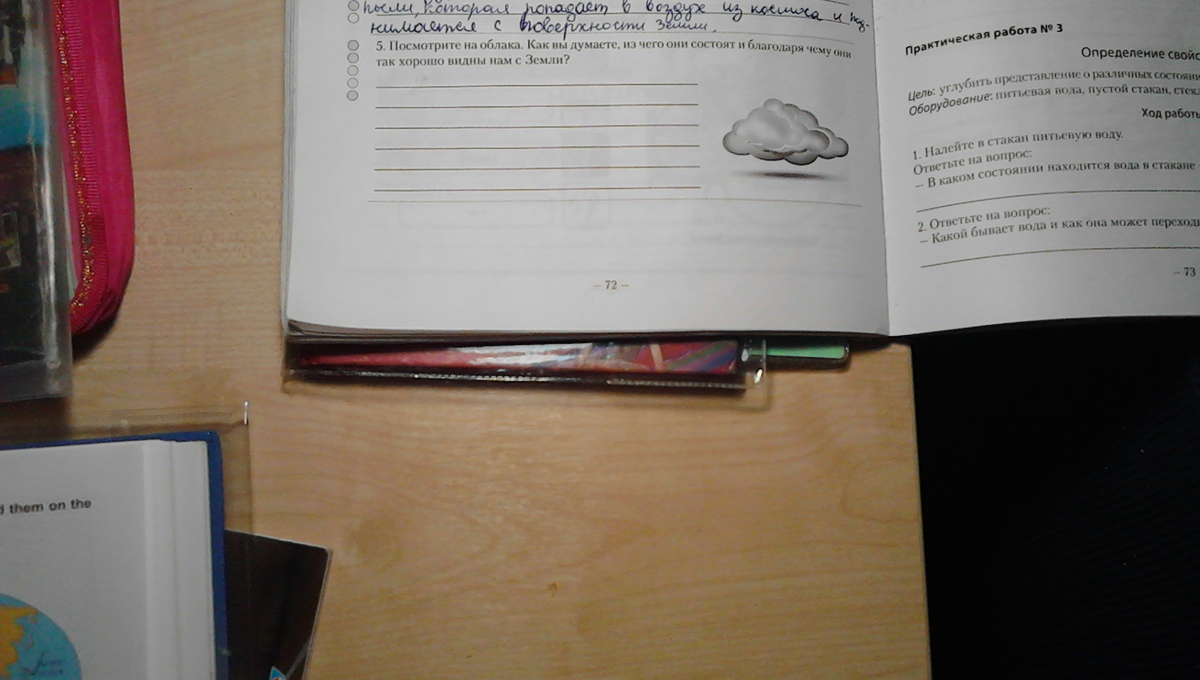 пыли, которая попадает в воздух из космоса и под-
нимается с поверхности Земли.
5. Посмотрите на облака. Как вы думаете, из чего они состоят и благодаря чему они
так хорошо видны нам с Земли?
– 72 –
Практическая работа № 3
Определение свойс
Цель: углубить представление о различных состояни
Оборудование: питьевая вода, пустой стакан, стекл
Ход работы
1. Налейте в стакан питьевую воду.
Ответьте на вопрос:
– В каком состоянии находится вода в стакане
2. Ответьте на вопрос:
– Какой бывает вода и как она может переходи
– 73
d them on the